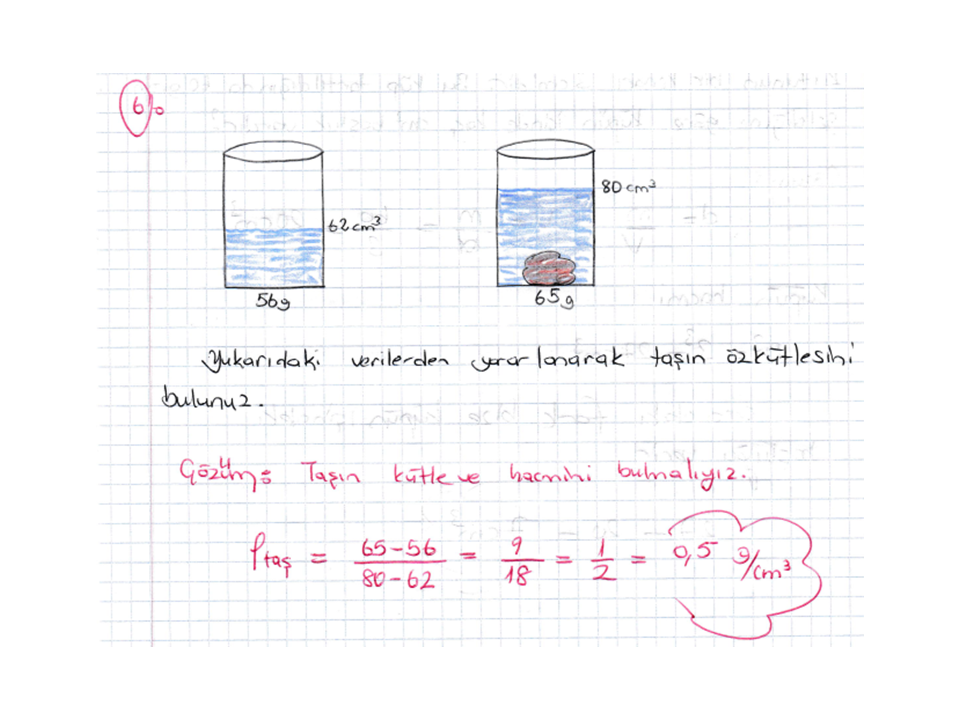 6)
80 cm³
62 cm³
56g
65g
Yukarıdaki verilerden yararlanarak taşın özkütlesini
bulunuz.
Çözüm: Taşın kütle ve hacmini bulmalıyız.
ρtaş = 65-56 / 80-62 = 9/18 = 1/2 = 0,5 g/cm³